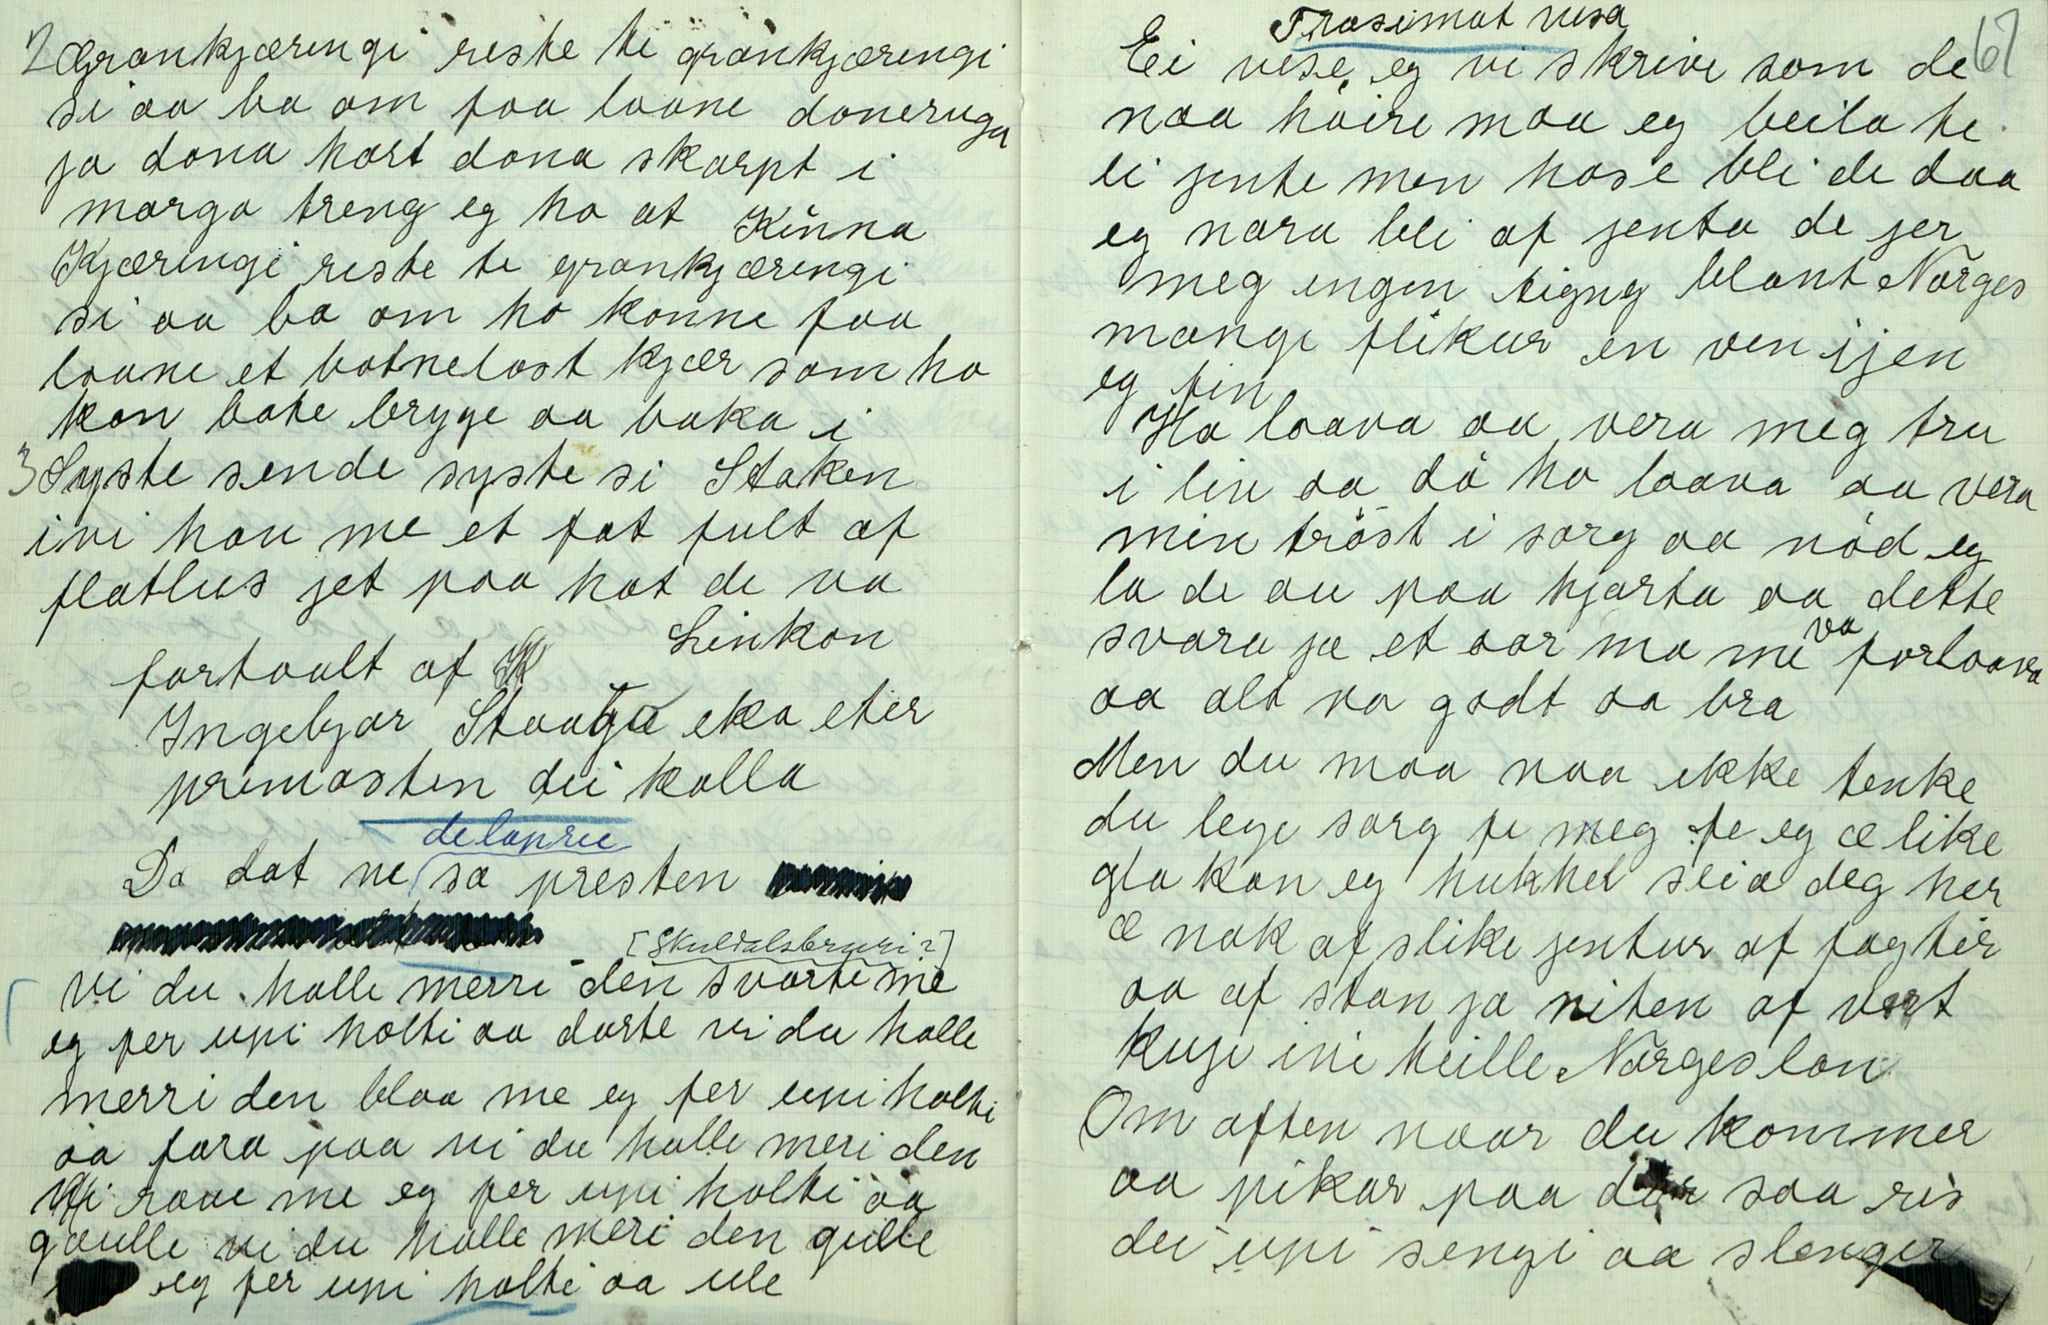 2 Grankjæringi reste te grankjæringi
si aa ba om faa laane doneruga
ja dona hart dona skarpt i
margo treng eg ho at Kinna
Kjæringi reste te grankjæringi
si aa ba om ho konne faa
laane et botnelast kjær som ho
kan bate brygge aa baka i
3 Syste sende syste si Staken
ivi hau me et fat fult af
flatlus jet paa hat de va
Linkon
fortoalt af
Ingebjor Staaga eka eter
primasten dei kalla
delapree
Da dat ne sa presten
[Skuldalsbruri?]
vi du halle merri den svarte me
eg per upi holti aa darte vi du halle
merri den blaa me eg fer upi holti
aa fara paa vi du halle meri den
raae me eg per upi holti aa
gaulle vi du halle meri den gulle
eg fer upi holti aa ule
67
Trasimat visa
Ei vise eg vi skrive som de
naa høire maa eg beila te
ei jente men hose bli de daa
eg nara bli af jenta de jer
meg ingen tigng blant Norges
mange flikur en ven ijen
eg fin
Ho laava aa vera meg tru
i liv aa då ho laava aa vera
min trøst i sorg aa nød eg
la de au paa hjarta aa dette
svara ja et aar ma me va forlaava
aa alt va godt aa bra
Men du maa naa ikke tenke
du lege sarg fe meg fe eg æ like
gla kan eg hukhel seia deg her
æ nok af slike jentur af fagtir
aa af stan ja niten af vort
kuge ivi heille Norges lan
Om aften naar du kommer
aa pikar paa dør saa ris
du upi sengi aa slenger